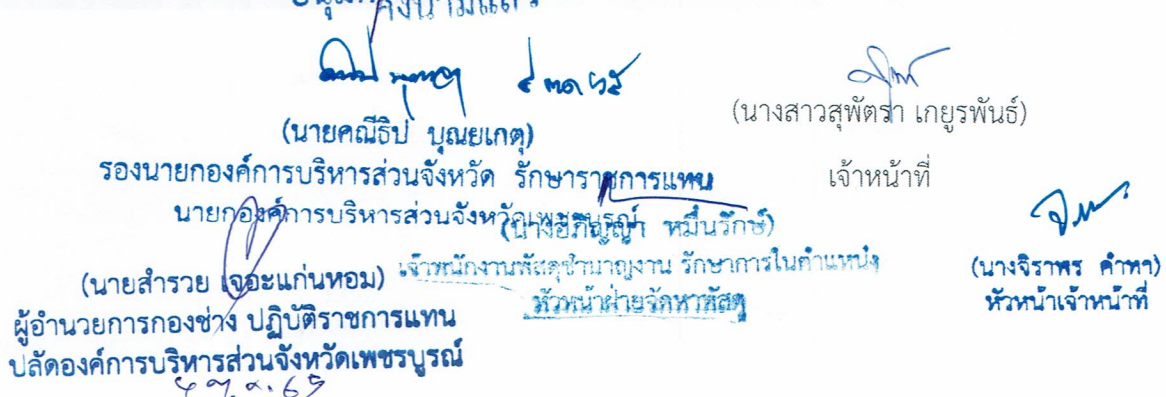 (นายคณีธิป บุณยเกตุ)
รองนายกองค์การบริหารส่วนจังหวัด รักษาราชการแทน
นายกองค์การบริหารส่วนจังหวัดเพชรบูรณ์
(นางสาวสุพัตรา เกยูรพันธ์)
เจ้าหน้าที่
(นางอภิญญา หมื่นรักษ์)
เจ้าพนักงานพัสดุชำนาญงาน รักษาการในตำแหน่ง
หัวหน้าฝ่ายจัดหาพัสดุ
(นางจิราพร คำพา)
หัวหน้าเจ้าหน้าที่
(นายสำรวย เจอะแก่นหอม)
ผู้อำนวยการกองช่าง ปฏิบัติราชการแทน
ปลัดองค์การบริหารส่วนจังหวัดเพชรบูรณ์